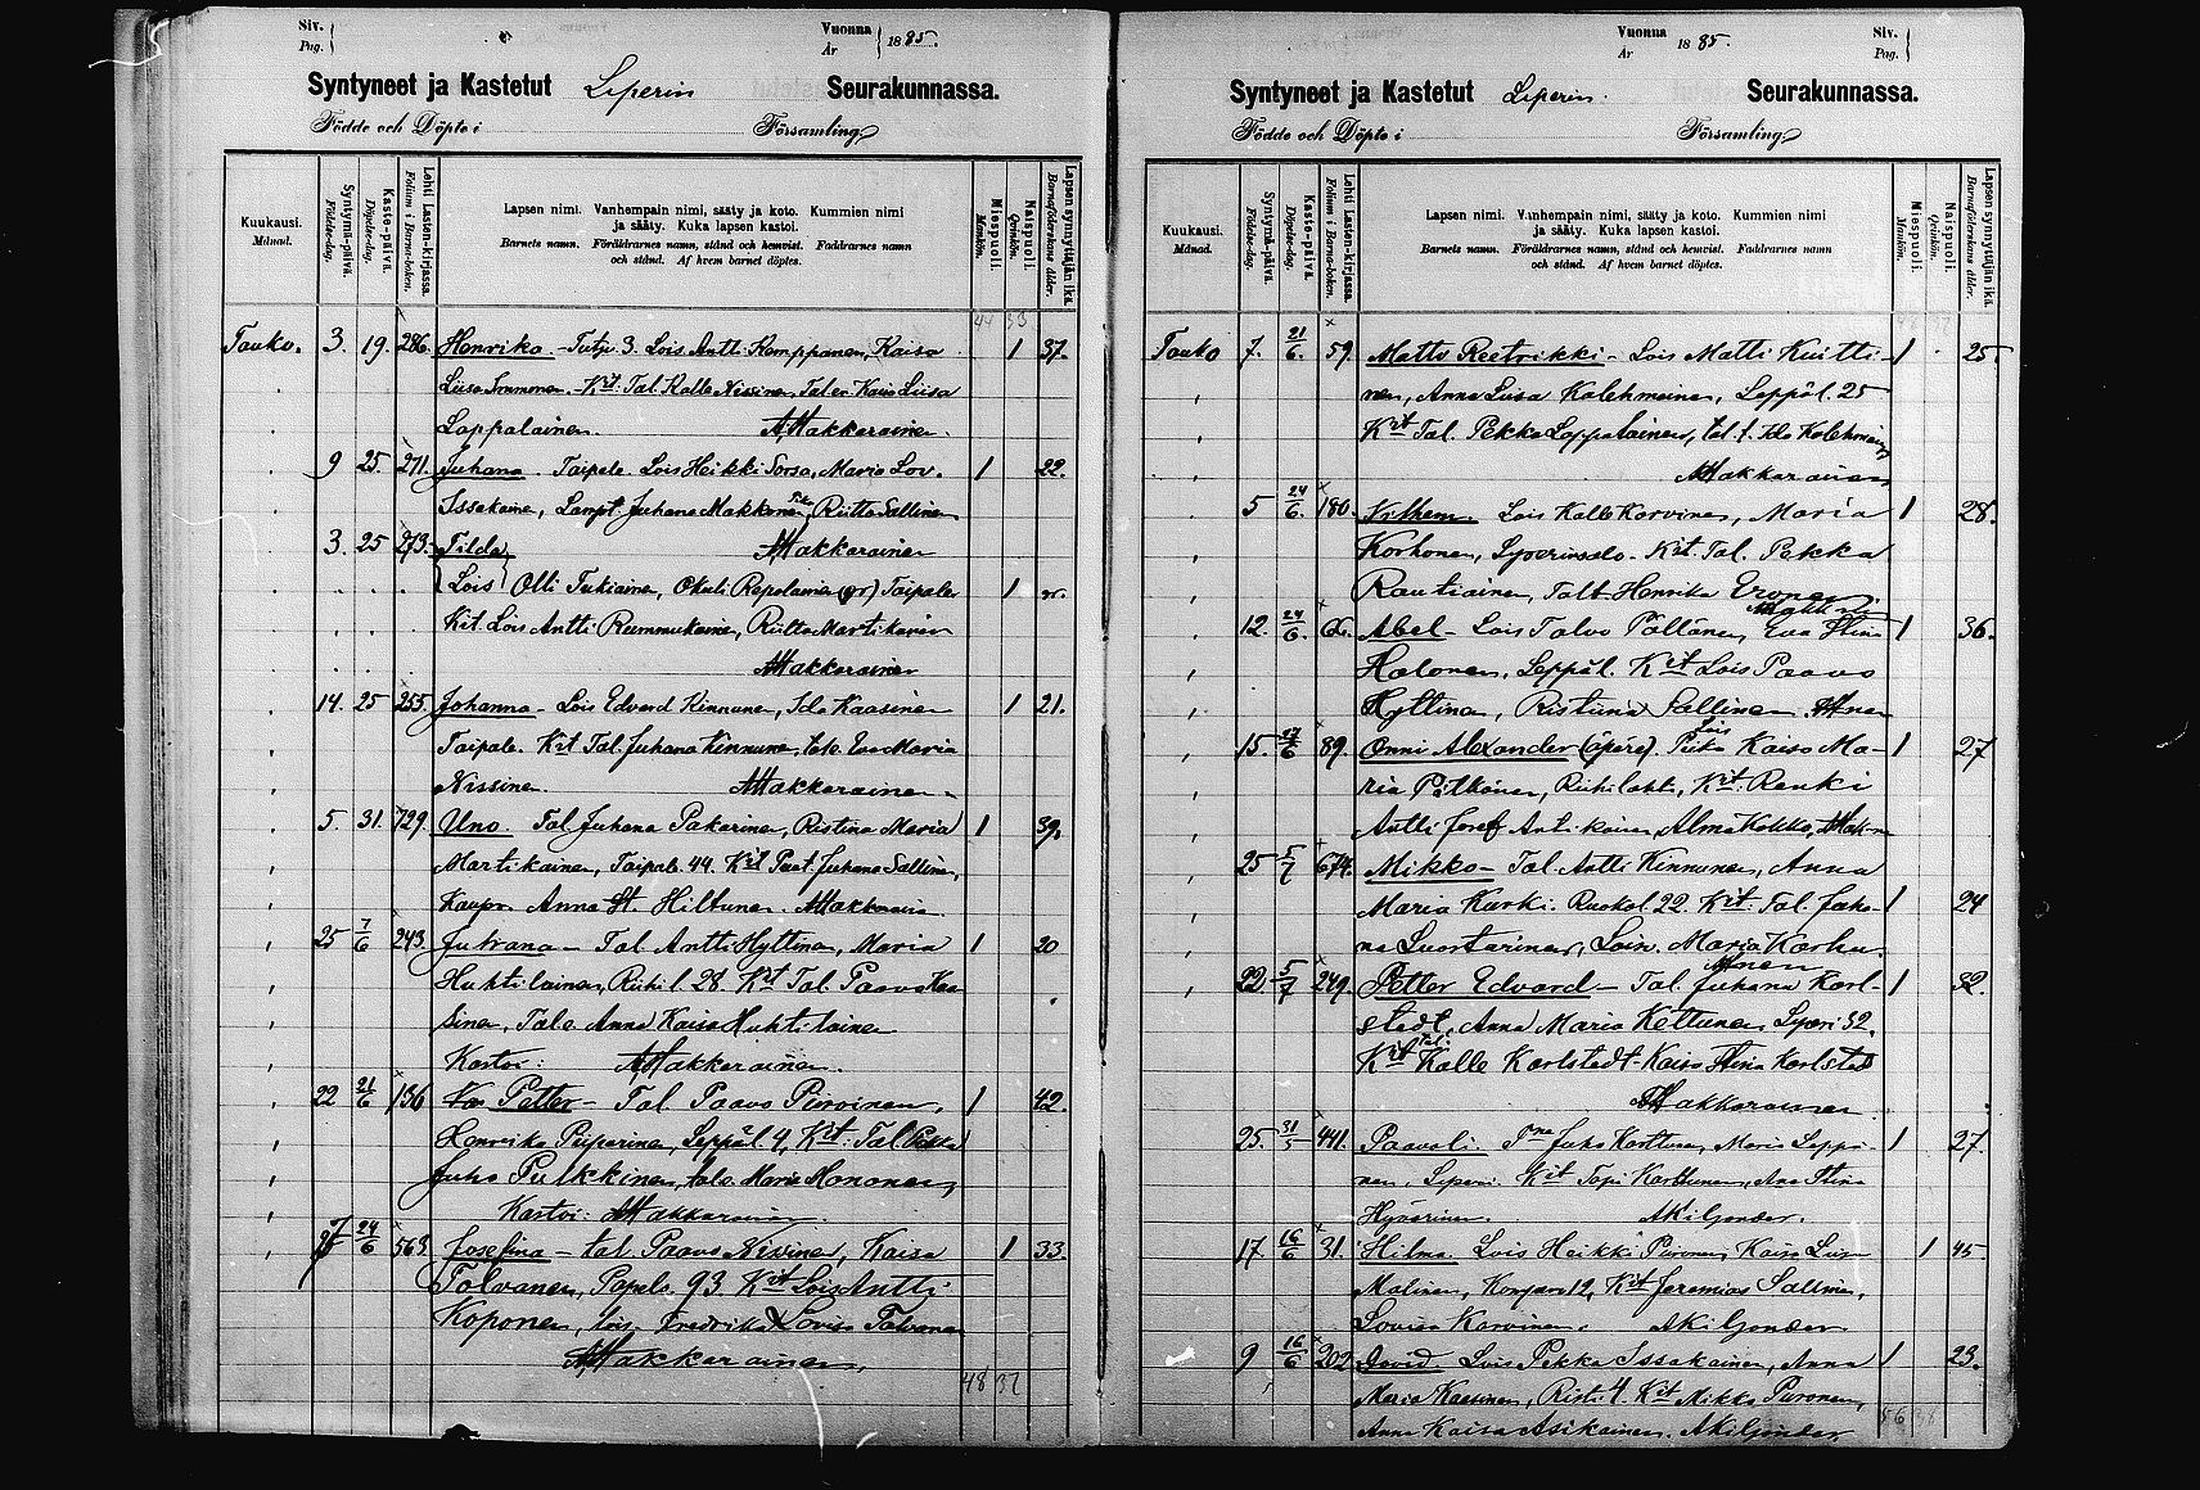 Siv.
Pag.
Vuonna
År
1885.
Syntyneet ja Kastetut Liperin Seurakunnassa.
Födde och Döpte i Församling.
Kuukausi.
Månad.
Syntymä-päivä.
Födelse-dag.
Kaste-päivä.
Döpelse-dag.
Lehti Lasten-kirjassa.
Folium i Barna-boken.
Lapsen nimi. Vanhempain nimi, sääty ja koto. Kummien nimi
ja sääty. Kuka lapsen kastoi.
Barnets namn. Föräldrarnes namn, stånd och hemvist. Faddrarnes namn
och stånd. Af hvem barnet döptes.
Miespuoli.
Mankön.
Naispuoli.
Qvinkön.
Lapsen synnyttäjän ikä.
Barnaföderskans ålder.
44 33
Touko. 3. 19. 286. Henrika - 3. Lois Antti Kemppanen, Kaisa 1 37.
Liisa Immonen. - Kit: Tal. Kalle Nissinen, Kaisa Liisa
Lappalainen. AMakkarainen.
9 25. 271. Juhana. Taipale. Lois Heikki Sorsa, Maria Lov. 1 22.
Issakaine, Lampt. Juhana Makkonen, Piika Riitta Sallinen
3. 25 273. Tilda, AMakkarainen
Lois Olli Tukiainen, Repolainen Taipale 1
Kit. Lois Antti Rummukaine, Riitta Martikainen
AMakkarainen
14. 25 255. Johanna - Lois Edvard Kinnunen, Ida Kaasinen 1 21.
Taipale. Kit Tal. Juhana Kinnune, Eva Maria
Nissinen. AMakkarainen.
5. 31. 729. Uno. Tal. Juhana Pakarinen, Ristina Maria 1 39.
Martikainen, Taipale. 44. Kit Juhana Sallinen,
Kaupr. Anna St. Hiltunen. AMakkarain.
25 7/6 243. Juhana - Tal. Antti Hyttinen, Maria 1 20
Huhtilainen, Riihil. 28. Kit Tal. Paavo Kaa
sinen, Tale. Anna Kaisa Huhtilainen
Kastoi: AMakkarainen.
22 21/6 136 Petter - Tal. Paavo Piiroinen, 1 42.
Henrika Piiparinen, Leppäl. 4, Kit: Tal. Pekka
Juho Pulkkinen, tale. Maria Mononen,
Kastoi: AMakkarainen.
24/6 563 Josefina - tal. Paavo Nivinen, Kaisa 1 33.
Tolvanen, Papela. 93 Kit Lois Antti
Koponen, lois. Fredrika Lovisa Tolvanen
AMakkarainen,
48 37
Siv.
Pag.
Vuonna
År
1885.
Syntyneet ja Kastetut Liperin. Seurakunnassa.
Födde och Döpte i Församling.
Kuukausi.
Månad.
Syntymä-päivä.
Födelse-dag.
Kaste-päivä.
Döpelse-dag.
Lehti Lasten-kirjassa.
Folium i Barna-boken.
Lapsen nimi. Vanhempain nimi, sääty ja koto. Kummien nimi
ja sääty. Kuka lapsen kastoi.
Barnets namn. Föräldrarnes namn, stånd och hemvist. Faddrarnes namn
och stånd. Af hvem barnet döptes.
Miespuoli.
Mankön.
Naispuoli.
Qvinkön.
Lapsen synnyttäjän ikä.
Barnaföderskans ålder.
Touko 7. 21/6. 59. Matti Reetrikki - Lois Matti Kuitti- 1 25.
nen, Anna Liisa Kolehmainen, Leppäl. 25
Kit Tal. Pekka Lappalainen, tal. t. Ida Kolehmainen
AMakkarainen
5 24/6. 180. Vilhem. Lois Kalle Korvinen, Maria 1 28.
Korhonen, Liperinsalo - Kit. Tal. Pekka
Rautiainen, Talt. Henrika Eronen
12. 24/6. 66. Abel - Lois Pöllänen, Eva Stina 1 36.
Halonen, Leppäl. Kit Lois Paavo
Hyttinen, Ristiina Sallinen.
15. 89. Onni Alexander (äpäre). Lois Piika Kaisa Ma- 1 27
ria Pitkänen, Riihilahti, Kit: Renki
Antti Josef Antikainen, Alma Kokko,
25 5/7 674. Mikko - Tal. Antti Kinnunen, Anna
Maria Kurki. Ruokol. 22. Kit: Tal. Juha- 1 24
na Luostarinen, Maria Karhu.
22. 5/7 249. Petter Edvard - Tal. Juhana Karl- 1 32.
stedt, Anna Maria Kettunen Liperi 32.
Kit Tal: Kalle Karlstedt - Kaisa Stina Karlsted
AMakkarainen.
25. 31/5 441. Paavali. Juho Karttunen, Maria Leppä- 1 27.
nen, Liperi. Kit Tapi Karttunen, Ana Stina
Hyvärinen. AKiljander.
17. 16/6 31. Hilma. Lois Heikki Puronen, Kaisa Liisa 1 45.
Malinen, Kompero 12, Kit Jeremias Sallinen,
Lovisa Karvinen. AKiljander.
9 16/6 202 David. Lois Pekka Issakainen, Anna 1 23.
Maria Kaasinen, Risti. 4. Kit Mikko Puronen,
Anna Kaisa Asikainen. AKiljander.
56 38